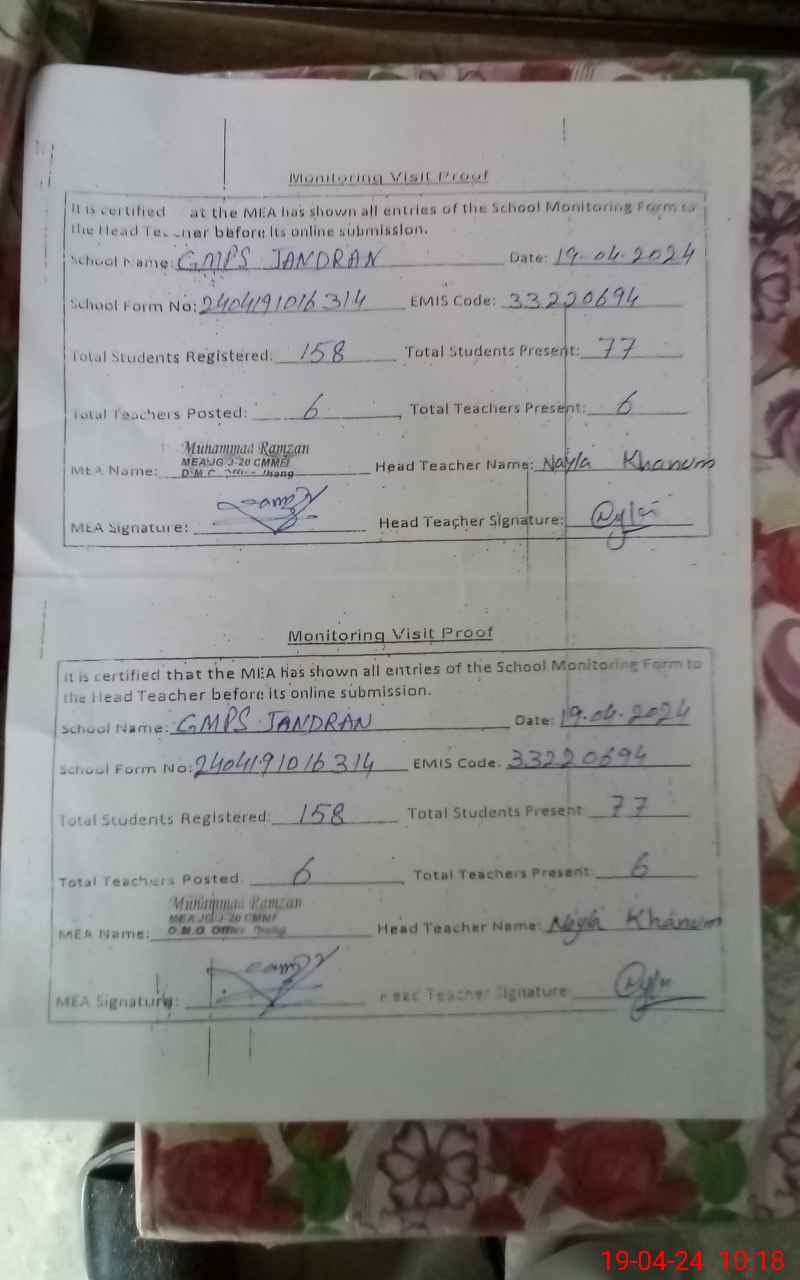 Monitoring Visit Proof
It is certified at the MEA has shown all entries of the School Monitoring Form to
the Head Teacher before its online submission.
School Name: GMPS JANDRAN Date: 19-04-2024
School Form No: 2404191016314 EMIS Code: 33220694
Total Students Registered: 158 Total Students Present: 77
Total Teachers Posted: 6 Total Teachers Present: 6
Muhammad Ramzan
MEA JG J-20 CMMF
MEA Name: D.M.O Office Jhang Head Teacher Name: Nayla Khanum
MEA Signature: Head Teacher Signature:
Monitoring Visit Proof
It is certified that the MEA has shown all entries of the School Monitoring Form to
the Head Teacher before its online submission.
School Name: GMPS JANDRAN Date: 19-04-2024
School Form No: 2404191016314 EMIS Code: 33220694
Total Students Registered: 158 Total Students Present: 77
Total Teachers Posted: 6 Total Teachers Present: 6
Muhammad Ramzan
MEA JG J-20 CMMF
MEA Name: D.M.O Office Jhang Head Teacher Name: Nayla Khanum
MEA Signature: Head Teacher Signature:
19-04-24 10:18